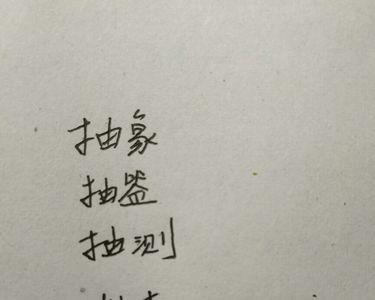 抽象
抽器
抽测